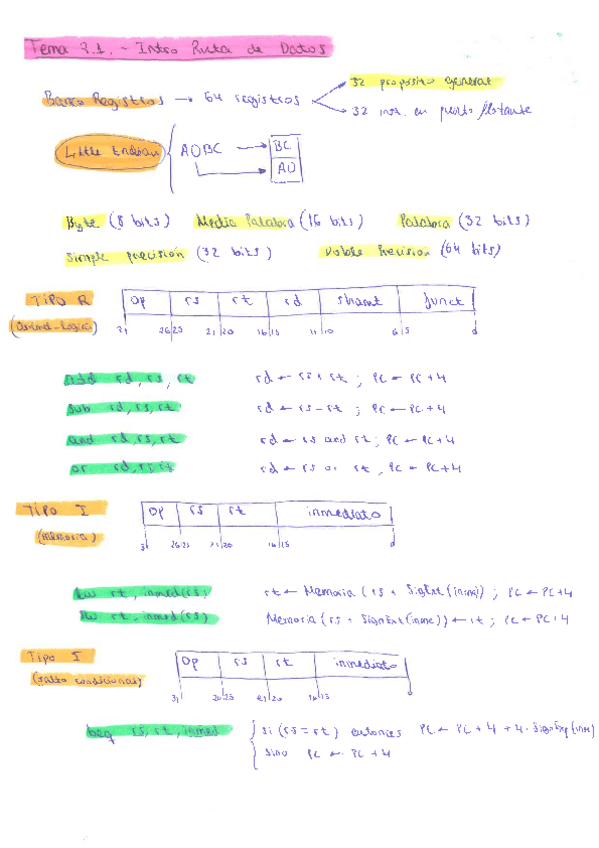 Tema 3.1. - Intro Ruta de Datos
Banco Registros → 64 registros
32 proposito general
32 ins. en punto flotante
Little Endian
A0BC → BC
A0
Byte (8 bits) Media Palabra (16 bits) Palabra (32 bits)
Simple precisión (32 bits) Doble Precision (64 bits)
TIPO R Op rs rt rd shamt funct
31 26 25 21 20 16 15 11 10 6 5 0
add rd, rs, rt rd ← rs + rt ; PC ← PC + 4
sub rd, rs, rt rd ← rs - rt ; PC ← PC + 4
and rd, rs, rt rd ← rs and rt ; PC ← PC + 4
or rd, rs, rt rd ← rs or rt , PC ← PC + 4
TIPO I Op rs rt inmediato
(memoria)
31 26 25 21 20 16 15 0
lw rt, inmed(rs) rt ← Memoria (rs + SigExt(inme)) ; PC ← PC + 4
sw rt, inmed(rs) Memoria (rs + SignExt(inme)) ← rt ; PC ← PC + 4
Tipo I Op rs rt inmediato
(salto condicional)
31 26 25 21 20 16 15 0
beq rs, rt, inmed si (rs = rt) entonces PC ← PC + 4 + 4·SignExt(inme)
sino PC ← PC + 4